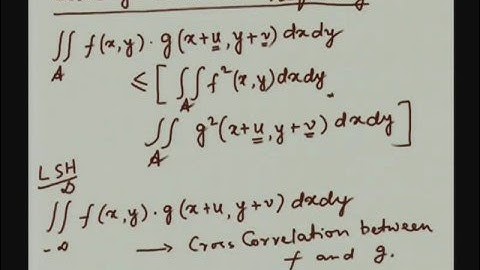 ∬_A f(x,y) · g(x+u, y+v) dxdy
≤ [ ∬_A f²(x,y) dxdy .
∬_A g²(x+u, y+v) dxdy ]
LSH
∬_{-∞}^{∞} f(x,y) · g(x+u, y+v) dxdy
→ Cross Correlation between
f and g.